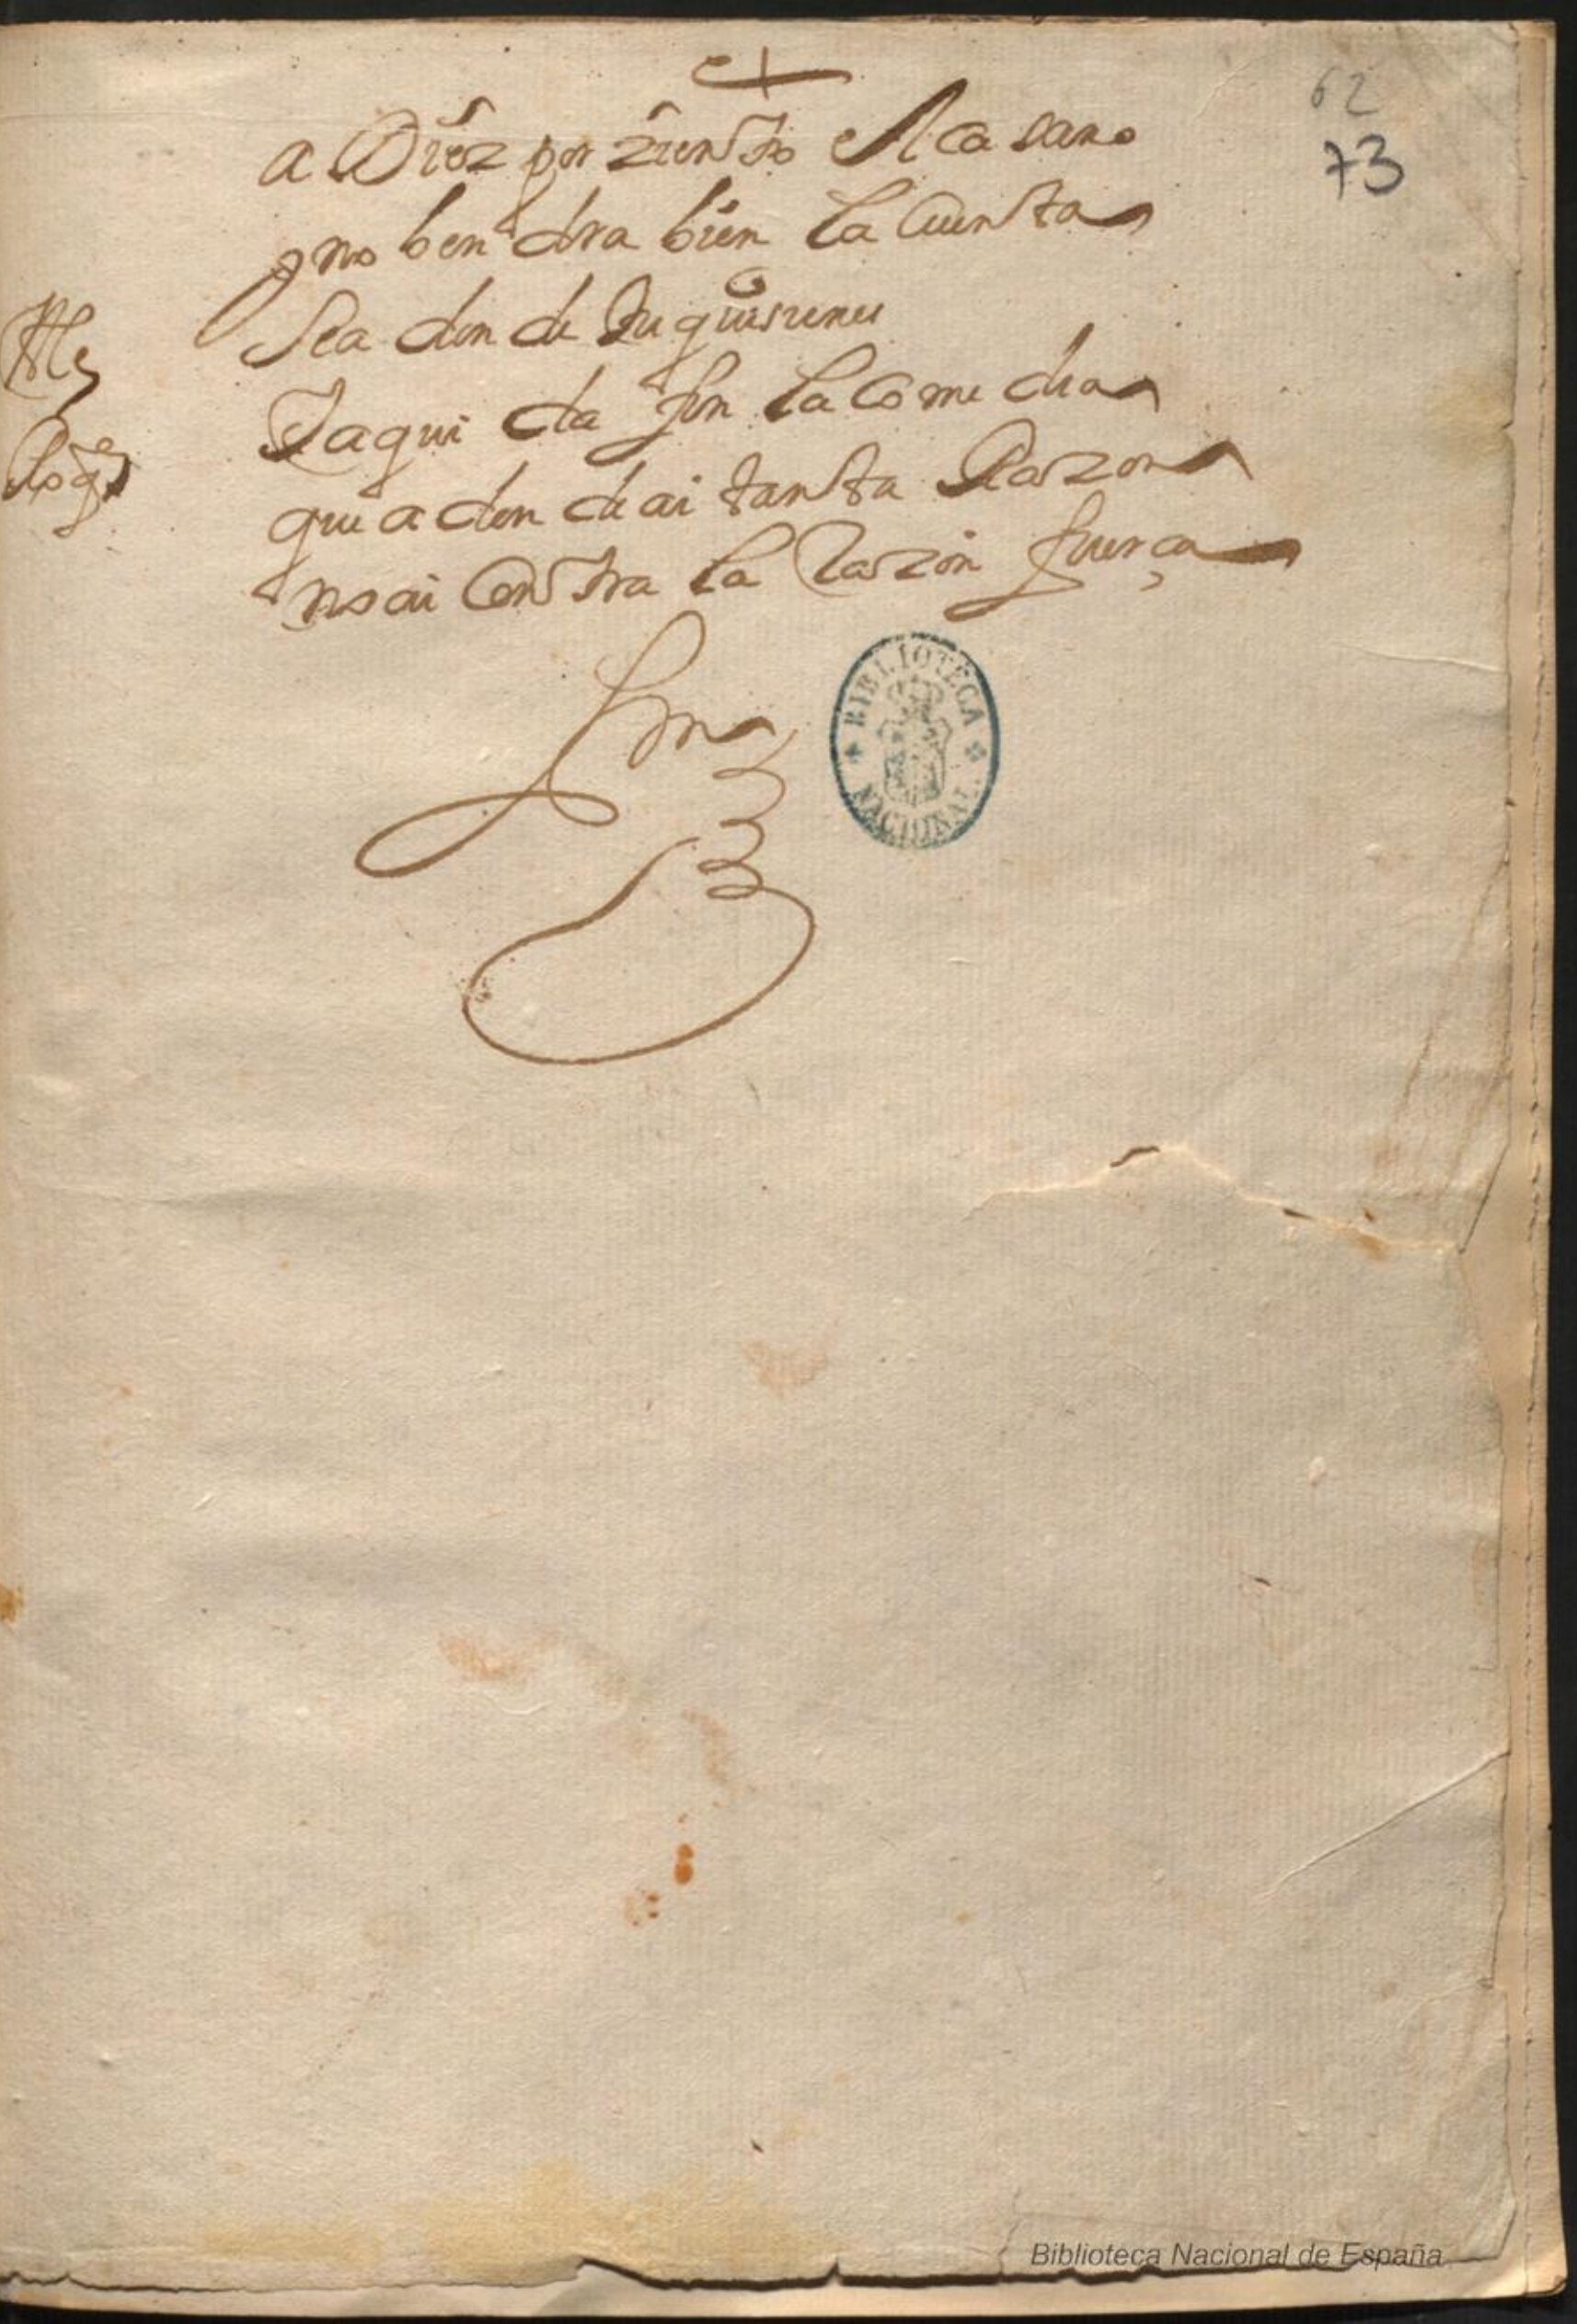 62
73
a Diez por ziento Al casamº
y no bendra bien la Cuenta
sea donde tu quisieres
Yaqui da fin la Comedia
que a donde ai tanta Razon
no ai Contra la Razon fuerça
BIBLIOTECA
NACIONAL
Biblioteca Nacional de España